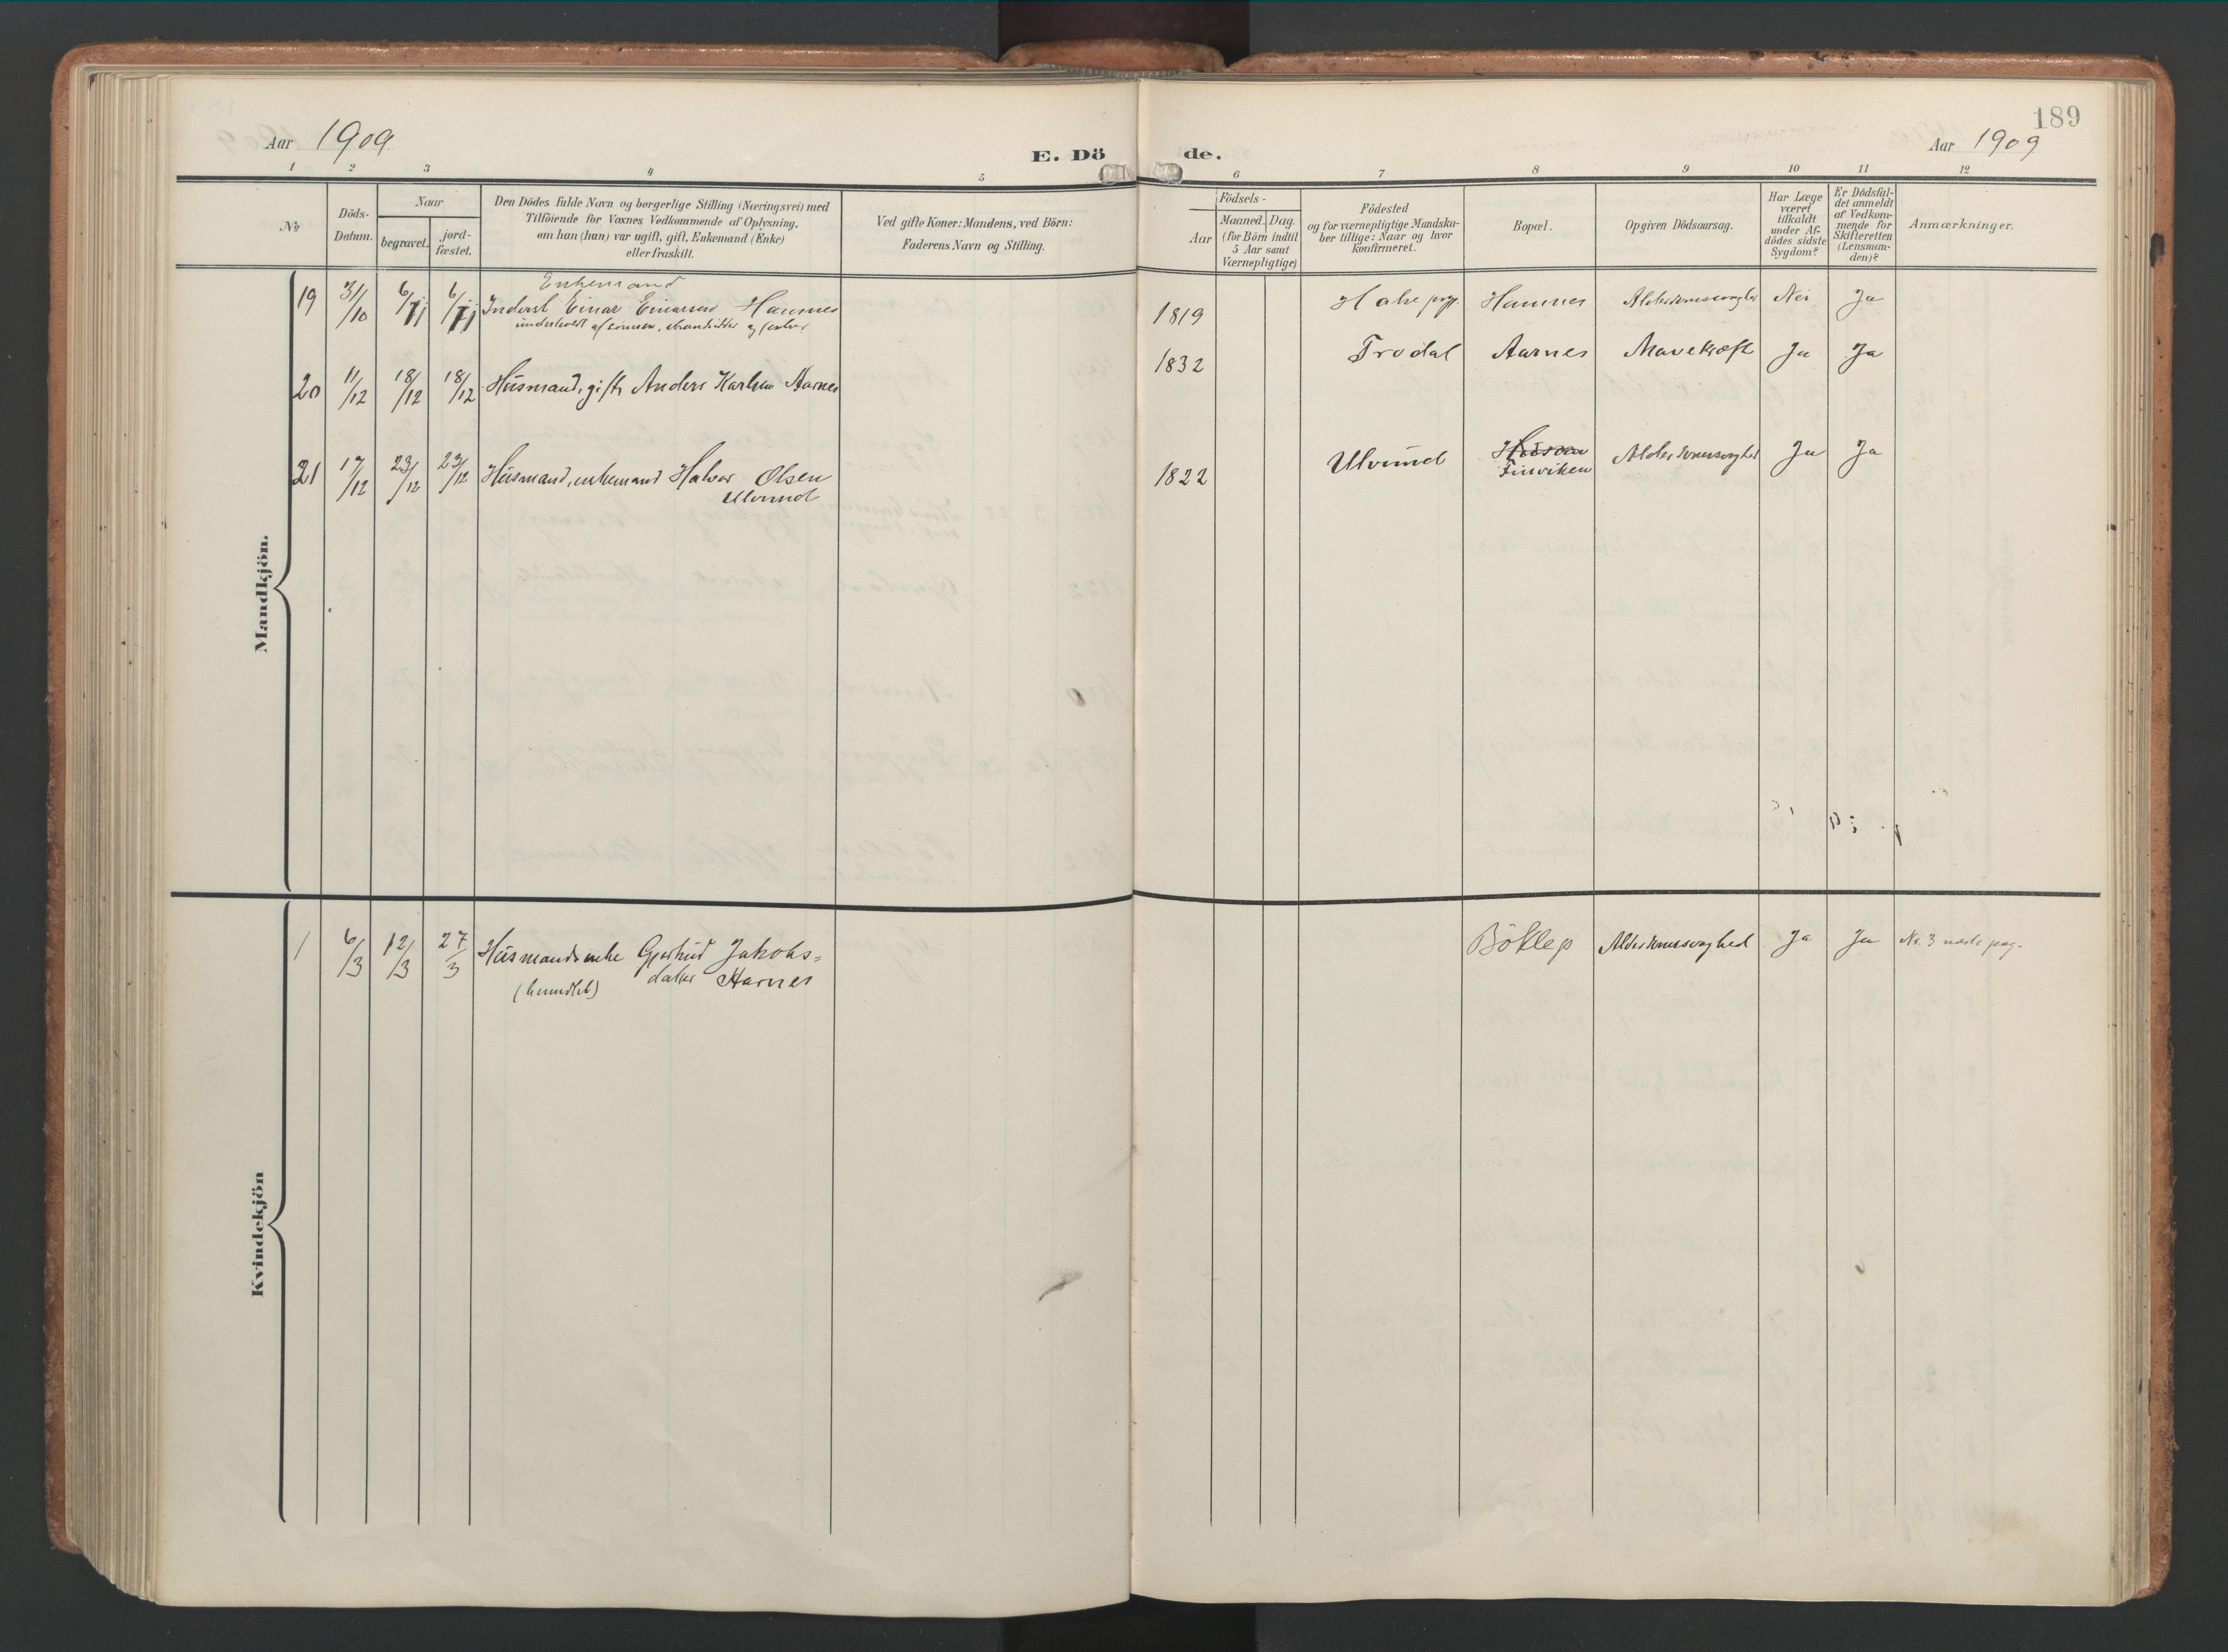 189
Aar 1909
E. Dö de.
Aar 1909
1 2 3 4 5 6 7 8 9 10 11 12
No
Döds-
Datum.
Naar
begravet.
jord-
fæstet.
Den Dödes fulde Navn og borgerlige Stilling (Næringsvei) med
Tilföiende for Voxnes Vedkommende af Oplysning,
om han (hun) var ugift, gift, Enkemand (Enke)
eller fraskilt.
Ved gifte Koner: Mandens, ved Börn:
Faderens Navn og Stilling.
Födsels-
Aar
Maaned. Dag.
(for Börn indtil
5 Aar samt
Værnepligtige)
Födested
og for værnepligtige Mandska-
ber tillige: Naar og hvor
konfirmeret.
Bopæl.
Opgiven Dödsaarsag.
Har Læge
været
tilkaldt
under Af-
dödes sidste
Sygdom?
Er Dödsfal-
det anmeldt
af Vedkom-
mende for
Skifteretten
(Lensman-
den)?
Anmærkninger.
Mandkjön.
Enkemand
19 31/10 6/11 6/11 Inderst Einar Einarsen Hamnes 1819 Halse prgj. Hamnes Alderdomssvaghed Nei Ja
underholdt af sönnen, strandsidder og fisker
20 11/12 18/12 18/12 Husmand, gift, Anders Karlsen Aarnes 1832 Trodal Aarnes Mavekræft Ja Ja
21 17/12 23/12 23/12 Husmand, enkemand Halvor Olsen 1822 Ulvund Alderdomssvaghed Ja Ja
Ulvund Finviken
Kvindekjön
1 6/3 12/3 27/3 Husmandsenke Gjertrud Jakobs= Böklep Alderdomssvaghed Ja Ja No. 3 næste pag.
datter Aarnes